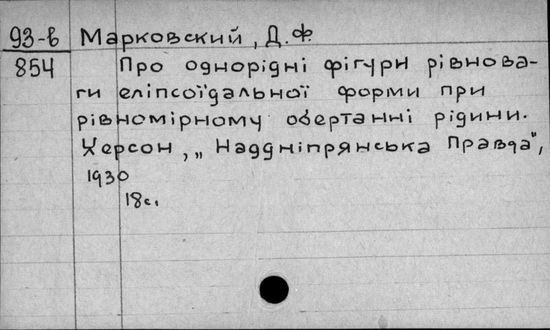 93-в Марковский, Д.Ф.
854 Про однорідні фігури рівнова-
ги еліпсоїдальної форми при
рівномірному обертанні рідини.
Херсон, „Наддніпрянська Правда",
1930
18с.